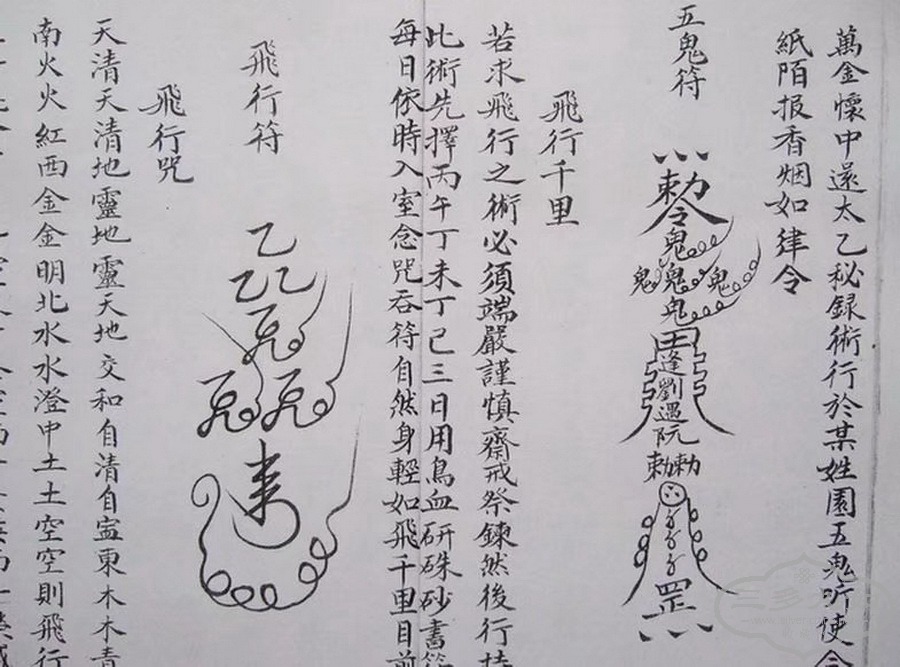 萬金懷中還太乙秘録術行於某姓園五鬼听使令
紙陌报香烟如律令
五鬼符
勅令
鬼
鬼鬼鬼
鬼
田
逢劉遇阮
勅勅
罡
飛行千里
若求飛行之術必須端嚴謹慎齋戒祭鍊然後行持
此術先擇丙午丁未丁巳三日用鳥血研硃砂書符
每日依時入室念咒吞符自然身輕如飛千里目前
飛行符
乙
乙乙
飛行咒
天清天清地靈地靈天地交和自清自寍東木木青
南火火紅西金金明北水水澄中土土空空則飛行